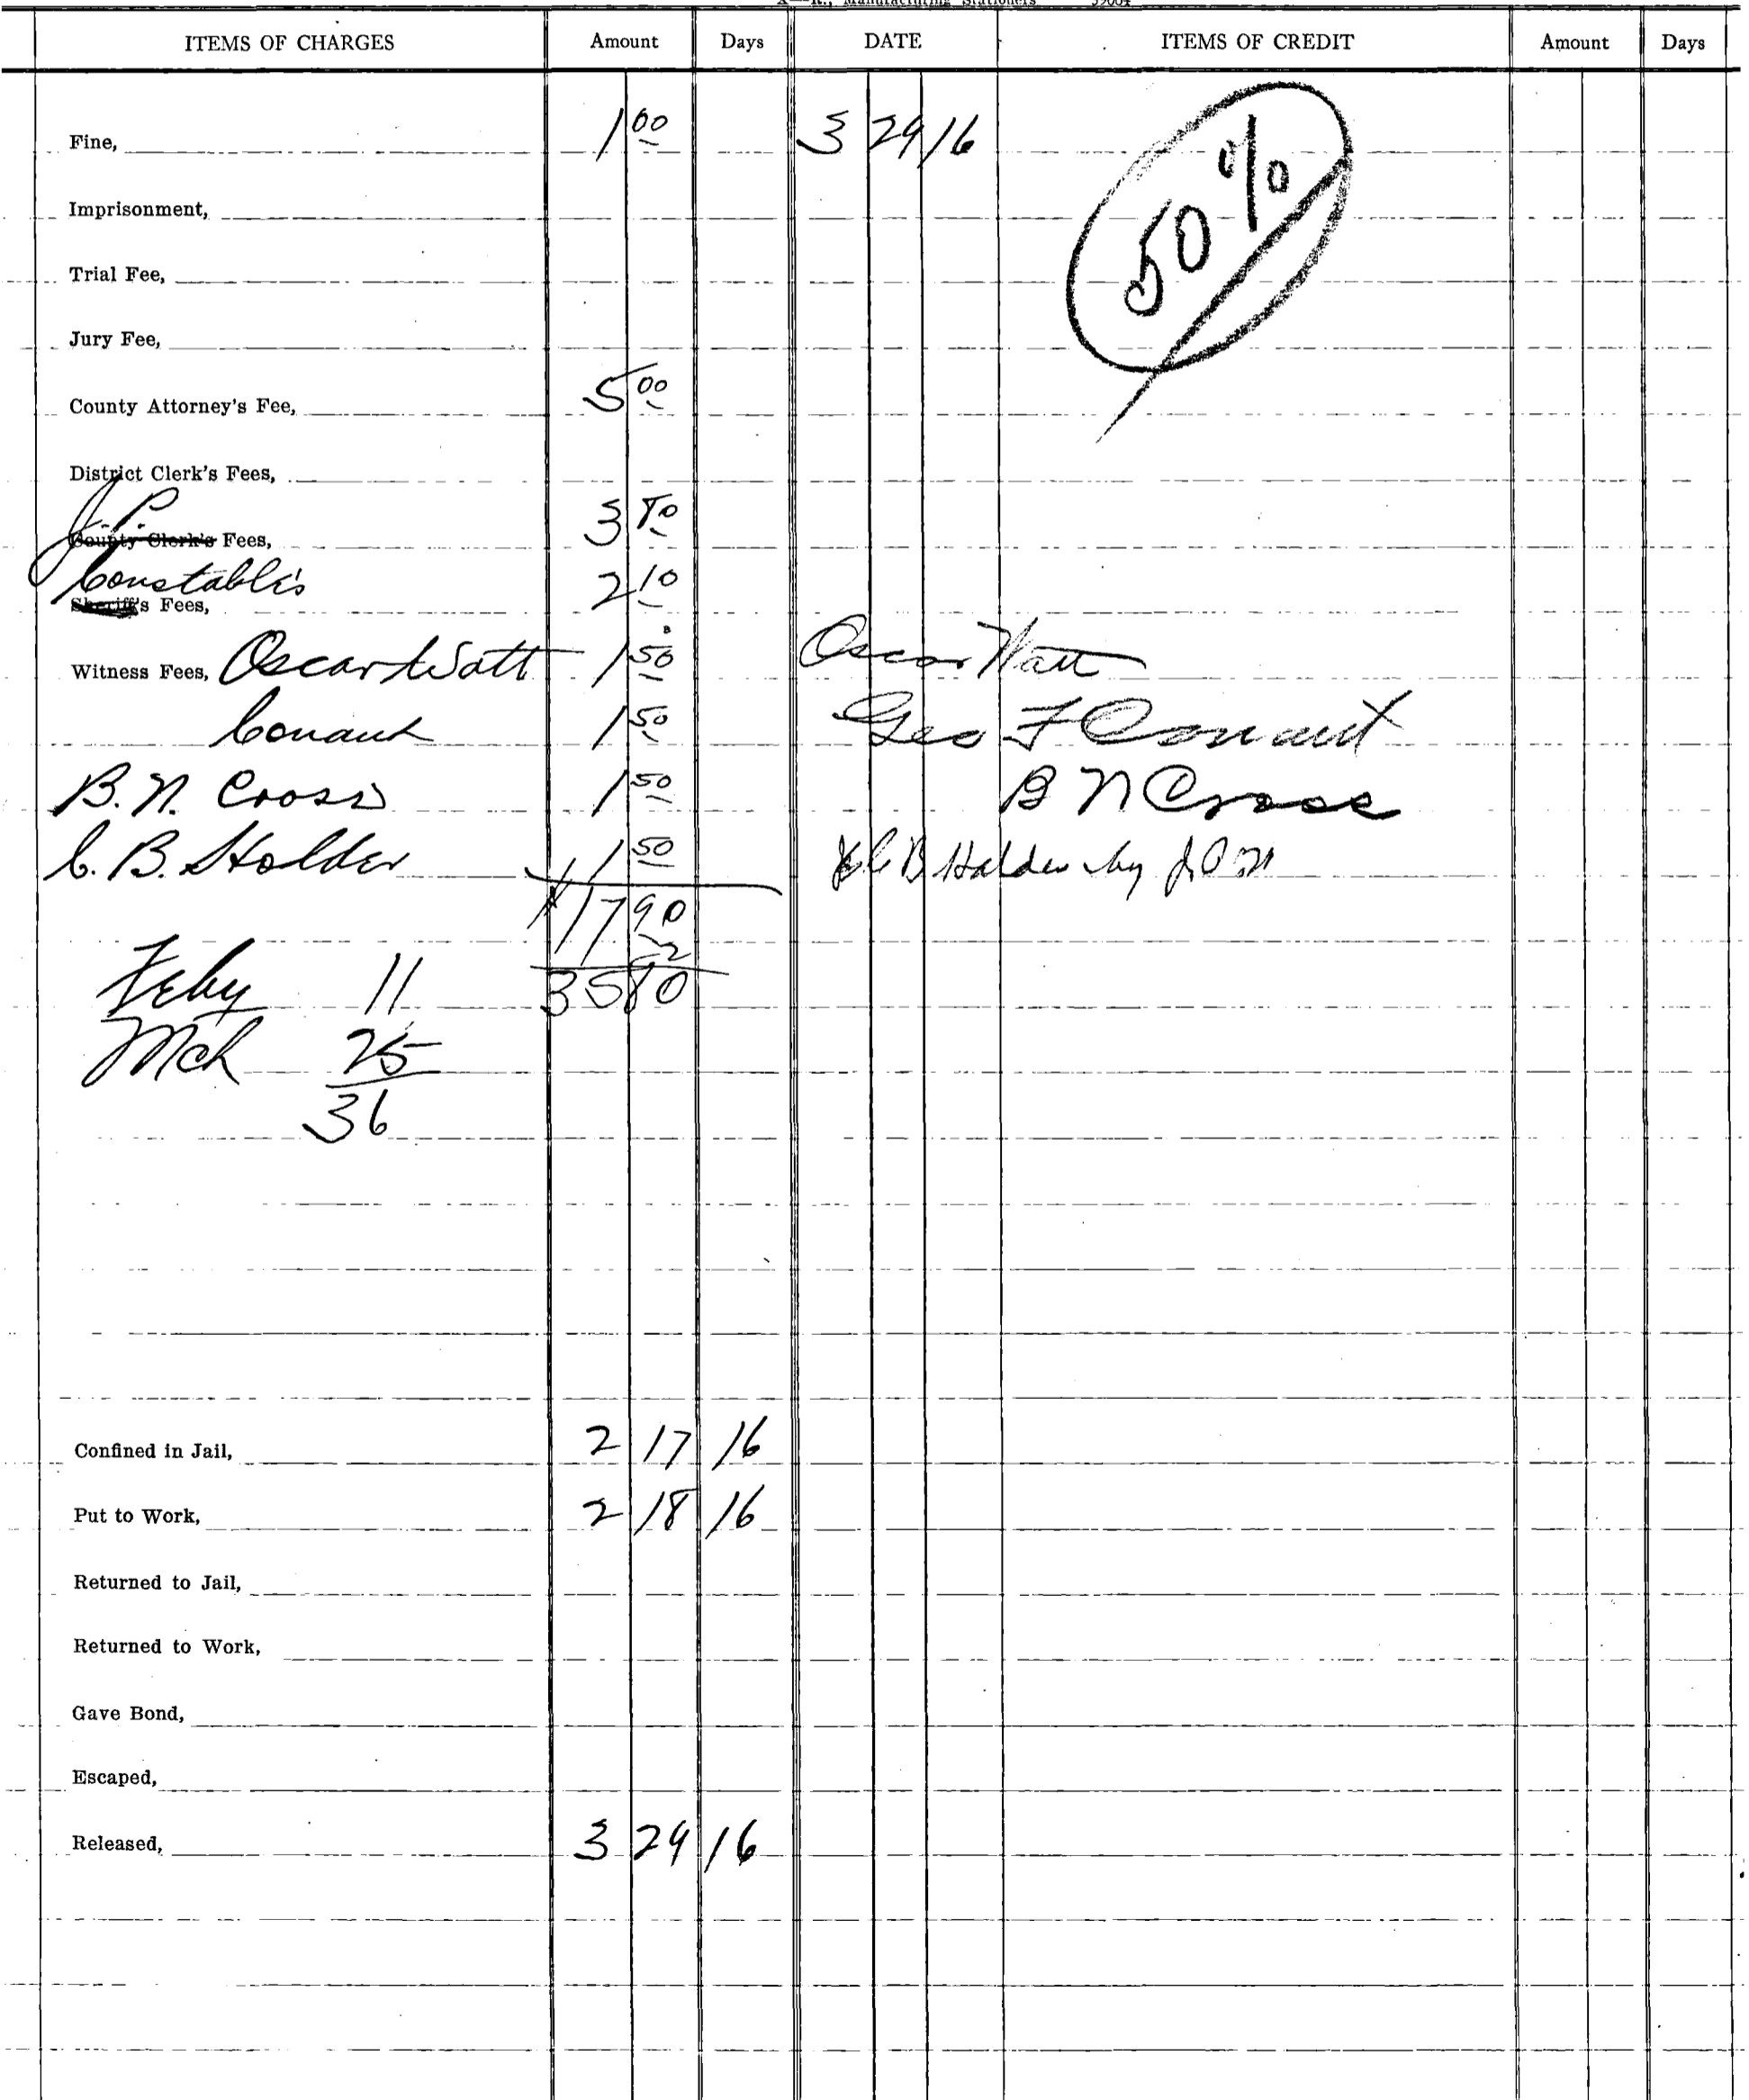 X—R., Manufacturing Stationers 39064
ITEMS OF CHARGES Amount Days DATE ITEMS OF CREDIT Amount Days
Fine, 1 00 3 29 16
50%
Imprisonment,
Trial Fee,
Jury Fee,
County Attorney's Fee, 5 00
District Clerk's Fees,
J.P.
County Clerk's Fees, 3 80
Constable's 2 10
Sheriff's Fees,
Witness Fees, Oscar Watt 1 50 Oscar Watt
Conant 1 50 Geo F Conant
B. N. Cross 1 50 B N Cross
C. B. Holder 1 50 C B Holder by
$17 90
2
Feby 11 35 80
Mch 25
36
Confined in Jail, 2 17 16
Put to Work, 2 18 16
Returned to Jail,
Returned to Work,
Gave Bond,
Escaped,
Released, 3 29 16